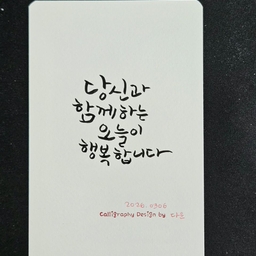 당신과
함께하는
오늘이
행복합니다
Calligraphy Design by